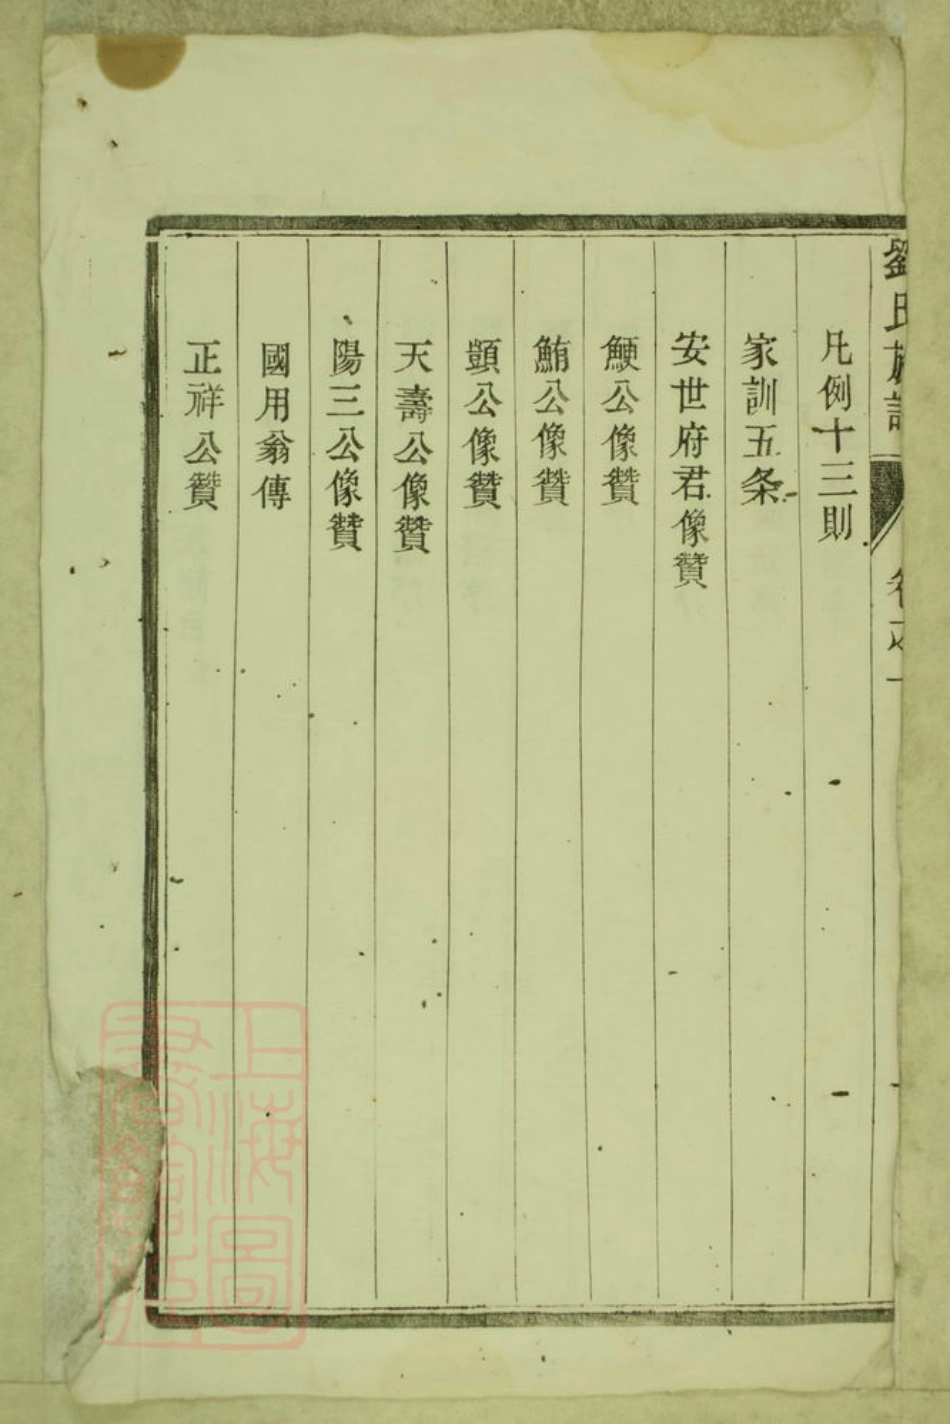 劉氏族譜
卷之一
凡例十三則
家訓五条
安世府君像贊
鯁公像贊
鮪公像贊
顗公像贊
天壽公像贊
陽三公像贊
國用翁傳
正祥公贊
上海圖
書館藏